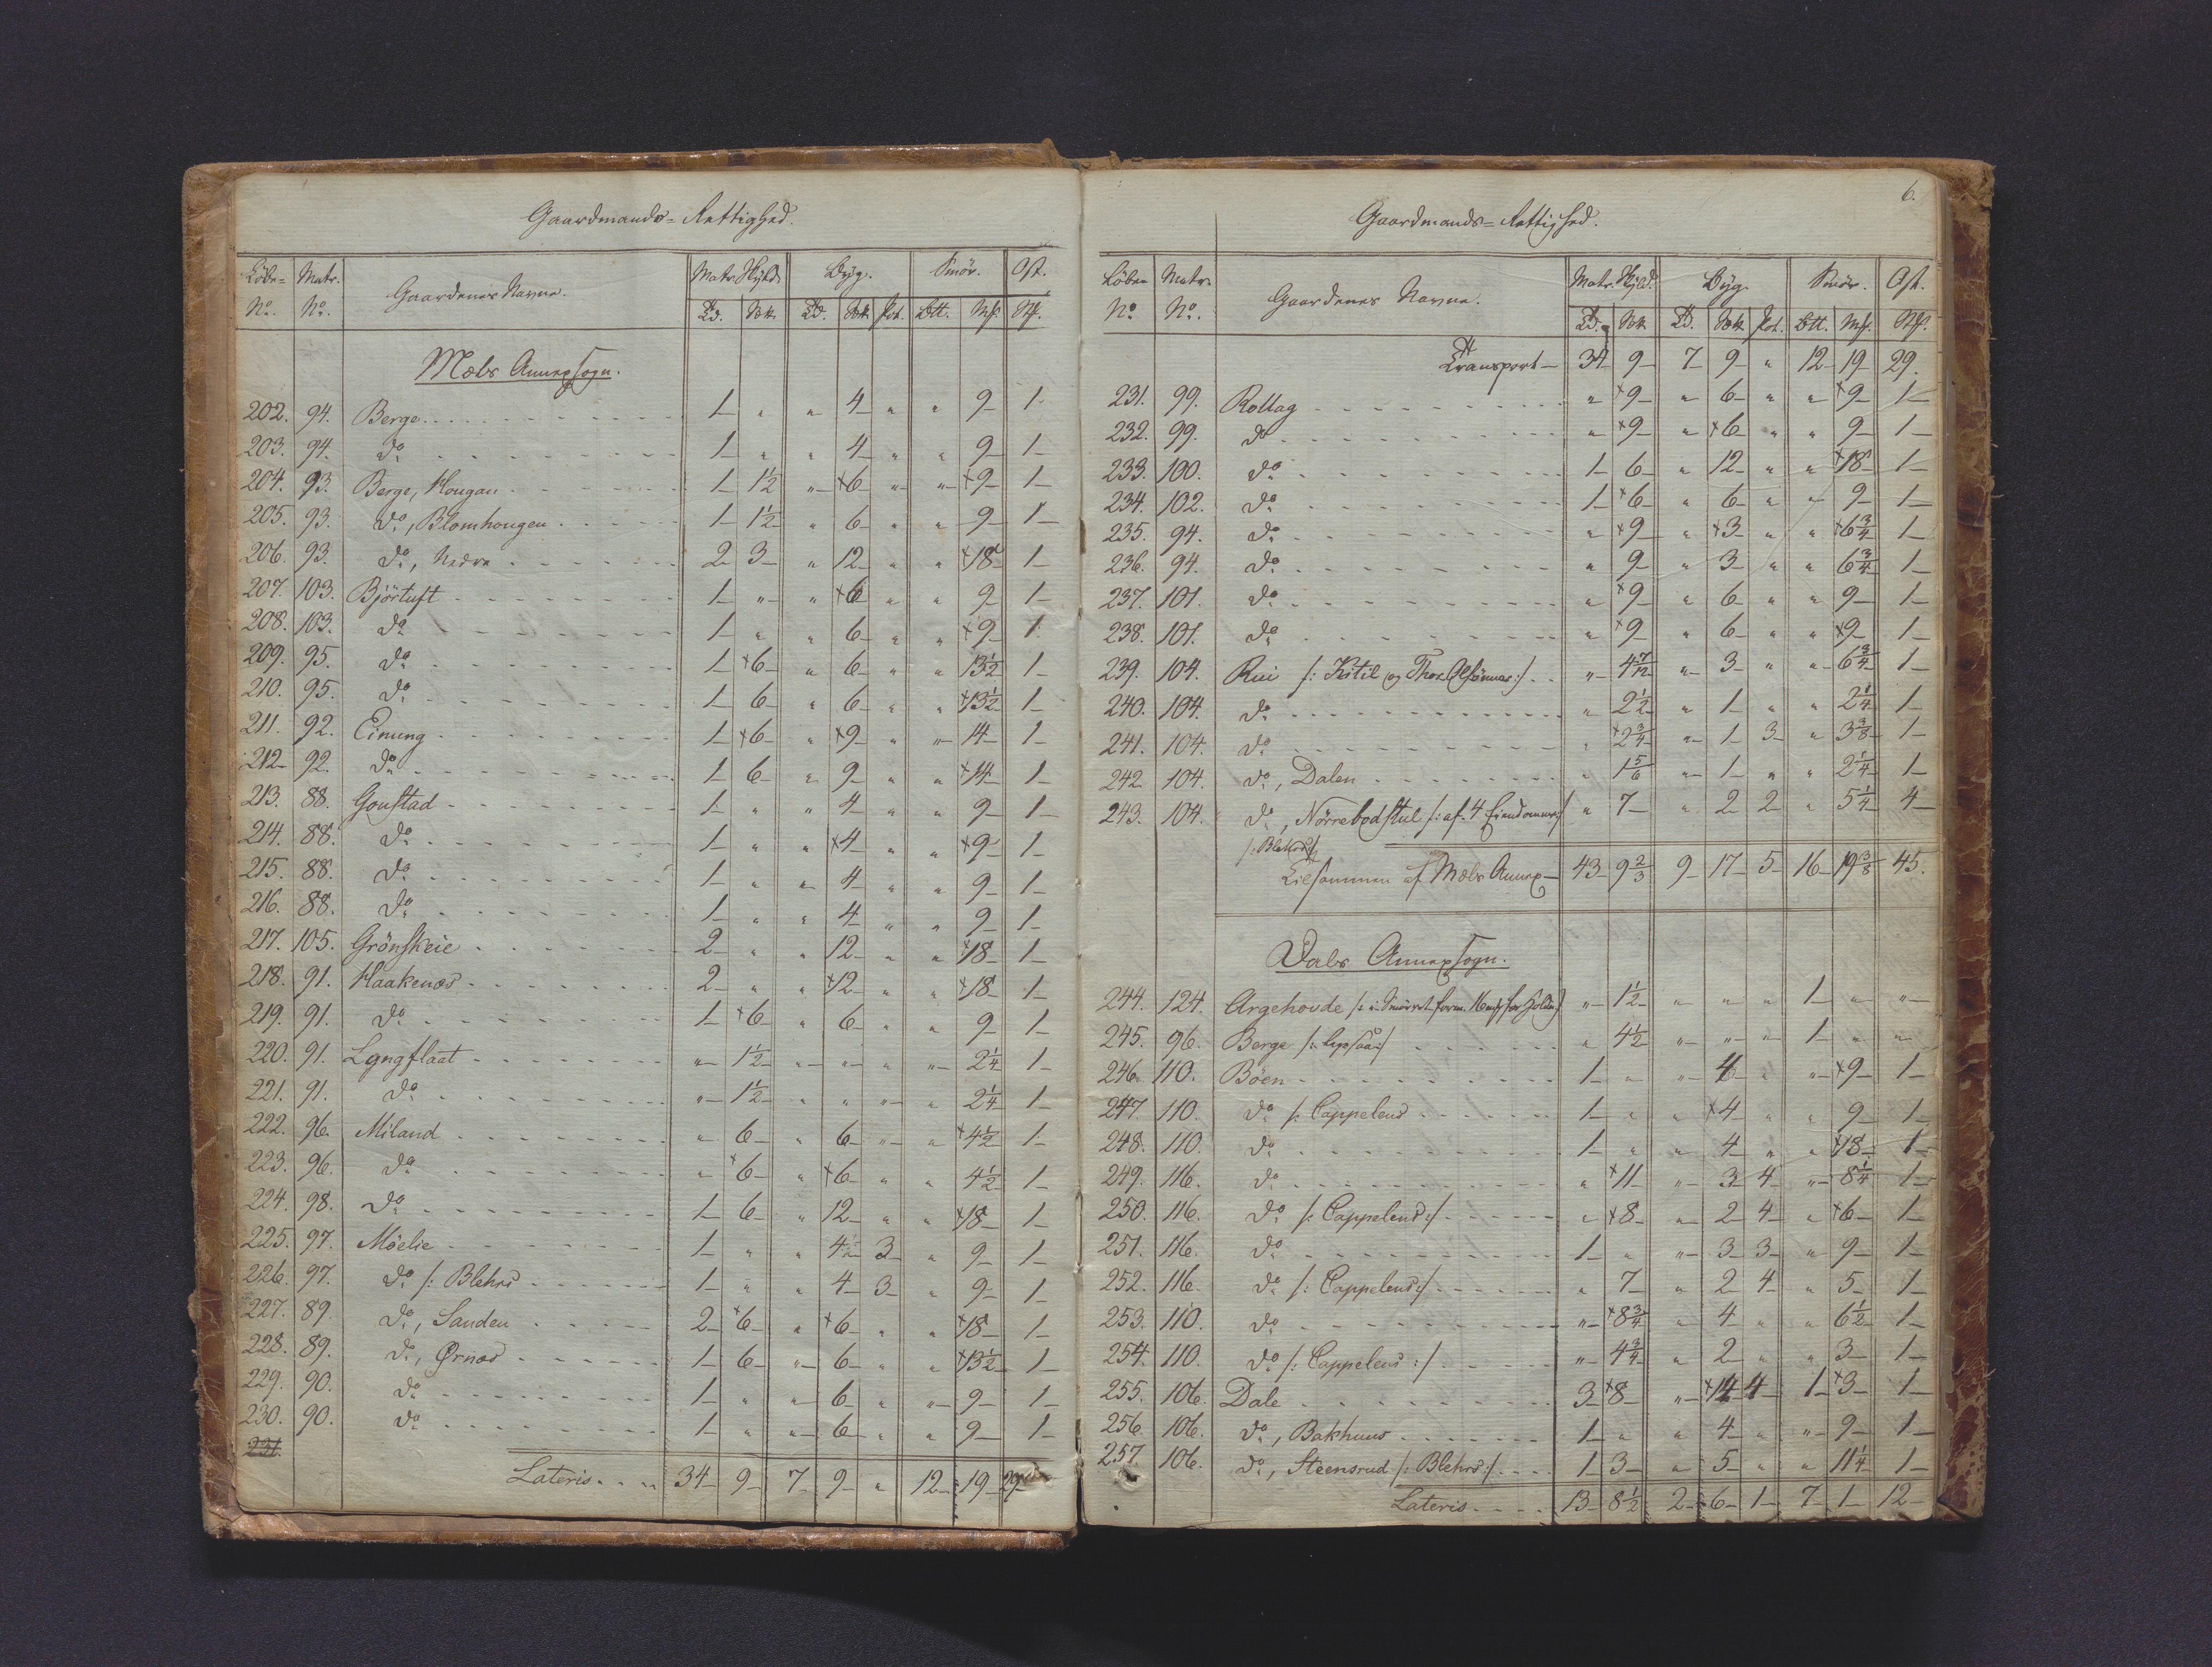 Gaardmands=Rettighed.
Löbe= Matr. Gaardenes Navne. Matr. Skyld. Byg. Smör. Ost.
No. No. Td. Sk. Td. Sk. Pot. Btt. Mk. Mk.
Mæls Annexsogn.
202. 94. Berge 1 " " 4 " " 9 1
203. 94. do 1 " " 4 " " 9 1
204. 93. Berge, Hougan 1 1½ " ×6 " " ×9 1
205. 93. do, Blomhougen 1 1½ " 6 " " 9 1
206. 93. do, Nedre 2 3 " 12 " " ×18 1
207. 103. Bjørtuft 1 " " ×6 " " 9 1
208. 103. do 1 " " 6 " " ×9 1
209. 95. do 1 ×6 " 6 " " 13½ 1
210. 95. do 1 6 " 6 " " ×13½ 1
211. 92. Einung 1 ×6 " ×9 " " 14 1
212 92. do 1 6 " 9 " " ×14 1
213. 88. Goustad 1 " " 4 " " 9 1
214. 88. do 1 " " ×4 " " ×9 1
215. 88. do 1 " " 4 " " 9 1
216. 88. do 1 " " 4 " " 9 1
217. 105. Grönskeie 2 " " 12 " " ×18 1
218. 91. Haakenæs 2 " " ×12 " " ×18 1
219. 91. do 1 ×6 " 6 " " 9 1
220. 91. Lyngflaat " 1½ " " " " 2¼ 1
221. 91. do " 1½ " " " " 2¼ 1
222. 96. Miland " 6 " 6 " " ×4½ 1
223. 96. do " ×6 " ×6 " " 4½ 1
224. 98. do 1 6 " 12 " " ×18 1
225. 97. Möelie 1 " " 4 3 " 9 1
226. 97. do /: Blehrs 1 " " 4 3 " 9 1
227. 89. do, Sanden 2 ×6 " ×6 " " ×18 1
228. 89. do, Ørnæs 1 6 " 6 " " ×13½ 1
229. 90. do 1 " " 6 " " 9 1
230. 90. do 1 " " 6 " " 9 1
231.
Lateris 34 9 7 9 " 12 19 29
6.
Gaardmands=Rettighed.
Löbe= Matr. Gaardenes Navne. Matr. Skyld. Byg. Smör. Ost.
No No. Td. Sk. Td. Sk. Pot. Btt. Mk. Mk.
Transport 34 9 7 9 " 12 19 29.
231. 99. Rollag " ×9 " 6 " " ×9 1
232. 99. do " ×9 " ×6 " " 9 1
233. 100. do 1 6 " 12 " " ×18 1
234. 102. do 1 ×6 " 6 " " 9 1
235. 94. do " ×9 " ×3 " " ×6¾ 1
236. 94. do " 9 " 3 " " 6¾ 1
237. 101. do " ×9 " 6 " " 9 1
238. 101. do " ×9 " 6 " " ×9 1
239. 104. Rui /: Kitil og Thor Olsönner :/ " 4 7/12 " 3 " " 6¾ 1
240. 104. do " 2½ " 1 " " 2¼ 1
241. 104. do " ×2¾ " 1 3 " 3⅜ 1
242 104. do, Dalen " 1⅚ " 1 " " 2¼ 1
243. 104. do, Nörrebodstul /: af 4 Eiendomme :/ " 7 " 2 2 " 5¼ 4
/: Blehrs :/
Tilsammen af Mæls Annex 43 9⅔ 9 17 5 16 19⅜ 45.
Dals Annexsogn.
244. 124. Argehovde " 1½ " " " 1 " "
245. 96. Berge " 4½ " " " 1 " "
246 110. Böen 1 " " 4 " " ×9 1
247. 110. do /: Cappelens 1 " " ×4 " " 9 1
248. 110. do 1 " " 4 " " ×18 1
249. 116. do " ×11 " 3 4 " 8¼ 1
250. 116. do /: Cappelens :/ " ×8 " 2 4 " ×6 1
251. 116. do 1 " " 3 3 " 9 1
252. 116. do /: Cappelens :/ " 7 " 2 4 " 5 1
253. 110. do " ×8¾ " 4 " " 6½ 1
254. 110. do /: Cappelens :/ " 4¾ " 2 " " 3 1
255. 106. Dale 3 ×8 " ×14 4 1 ×3 1
256. 106. do, Bakhuus 1 " " 4 " " 9 1
257. 106. do, Steensrud /: Blehrs :/ 1 3 " 5 " " 11¼ 1
Lateris 13 8½ 2 6 1 7 1 12